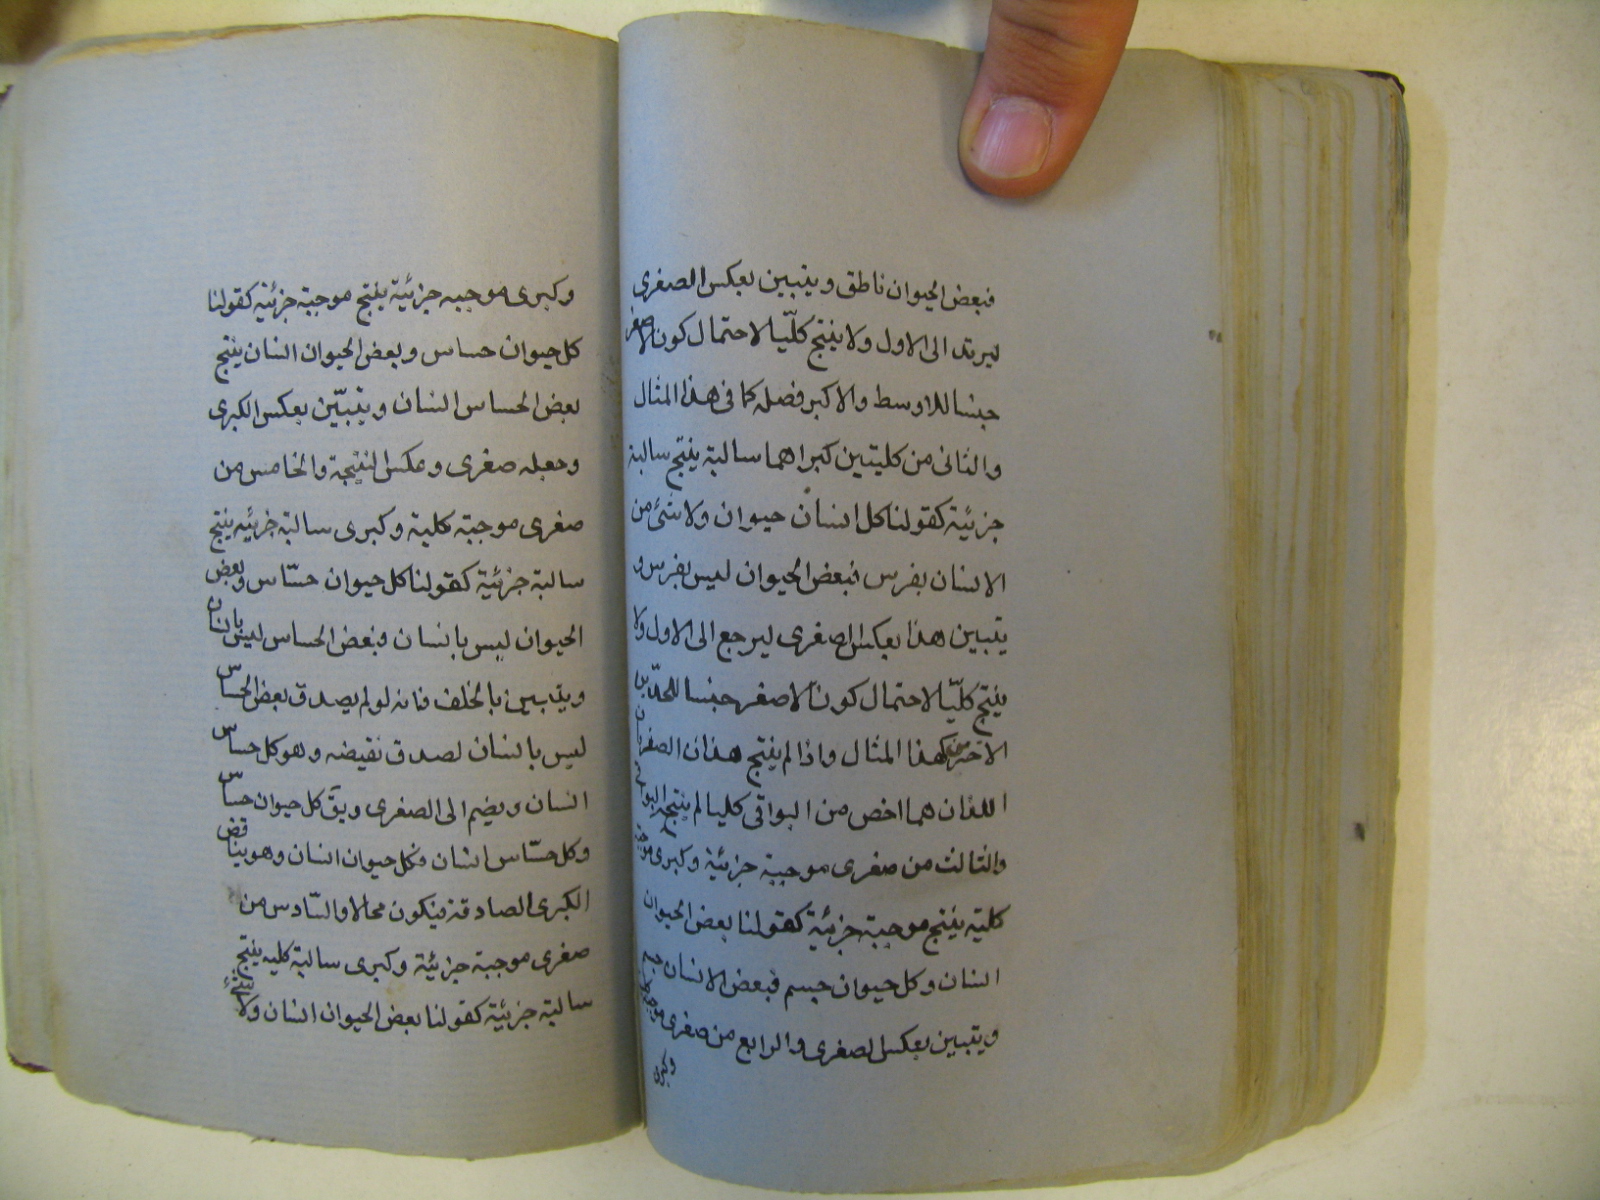 فبعض الحیوان ناطق ویتبین بعکس الصغری
لیرتد الی الاول ولا ینتج کلّیّا لاحتمال کون الاصغر
جنسا للاوسط والاکبر فصله کما فی هذا المثال
والثانی من کلیتین کبراهما سالبة ینتج سالبة
جزئیة کقولنا کل انسان حیوان ولا شئ من
الانسان بفرس فبعض الحیوان لیس بفرس و
یتبین هذا بعکس الصغری لیرجع الی الاول ولا
ینتج کلیّا لاحتمال کون الاصغر جنسا للحدّین
الاخرین کهذا المثال واذا لم ینتج هذان الضربان
اللذان هما اخص من البواقی کلیا لم ینتجه البواقی
والثالث من صغری موجبة جزئیة وکبری موجبة
کلیة ینتج موجبة جزئیة کقولنا بعض الحیوان
انسان وکل حیوان جسم فبعض الانسان جسم
ویتبین بعکس الصغری والرابع من صغری موجبة کلیة
وکبری
وکبری موجبه جزئیة ینتج موجبة جزئیة کقولنا
کل حیوان حساس وبعض الحیوان انسان ینتج
بعض الحساس انسان ویتبیّن بعکس الکبری
وجعله صغری وعکس النتیجة والخامس من
صغری موجبة کلیة وکبری سالبة جزئیه ینتج
سالبة جزئیة کقولنا کل حیوان حسّاس وبعض
الحیوان لیس بانسان فبعض الحساس لیس بانسان
ویتبین بالخلف فانه لو لم یصدق بعض الحساس
لیس بانسان لصدق نقیضه وهو کل حساس
انسان ویضم الی الصغری ویقَ کل حیوان حساس
وکل حسّاس انسان فکل حیوان انسان وهو یناقض
الکبری الصادقة فیکون محالا والسّادس من
صغری موجبة جزئیة وکبری سالبة کلیه ینتج
سالبة جزئیة کقولنا بعض الحیوان انسان ولا شئ